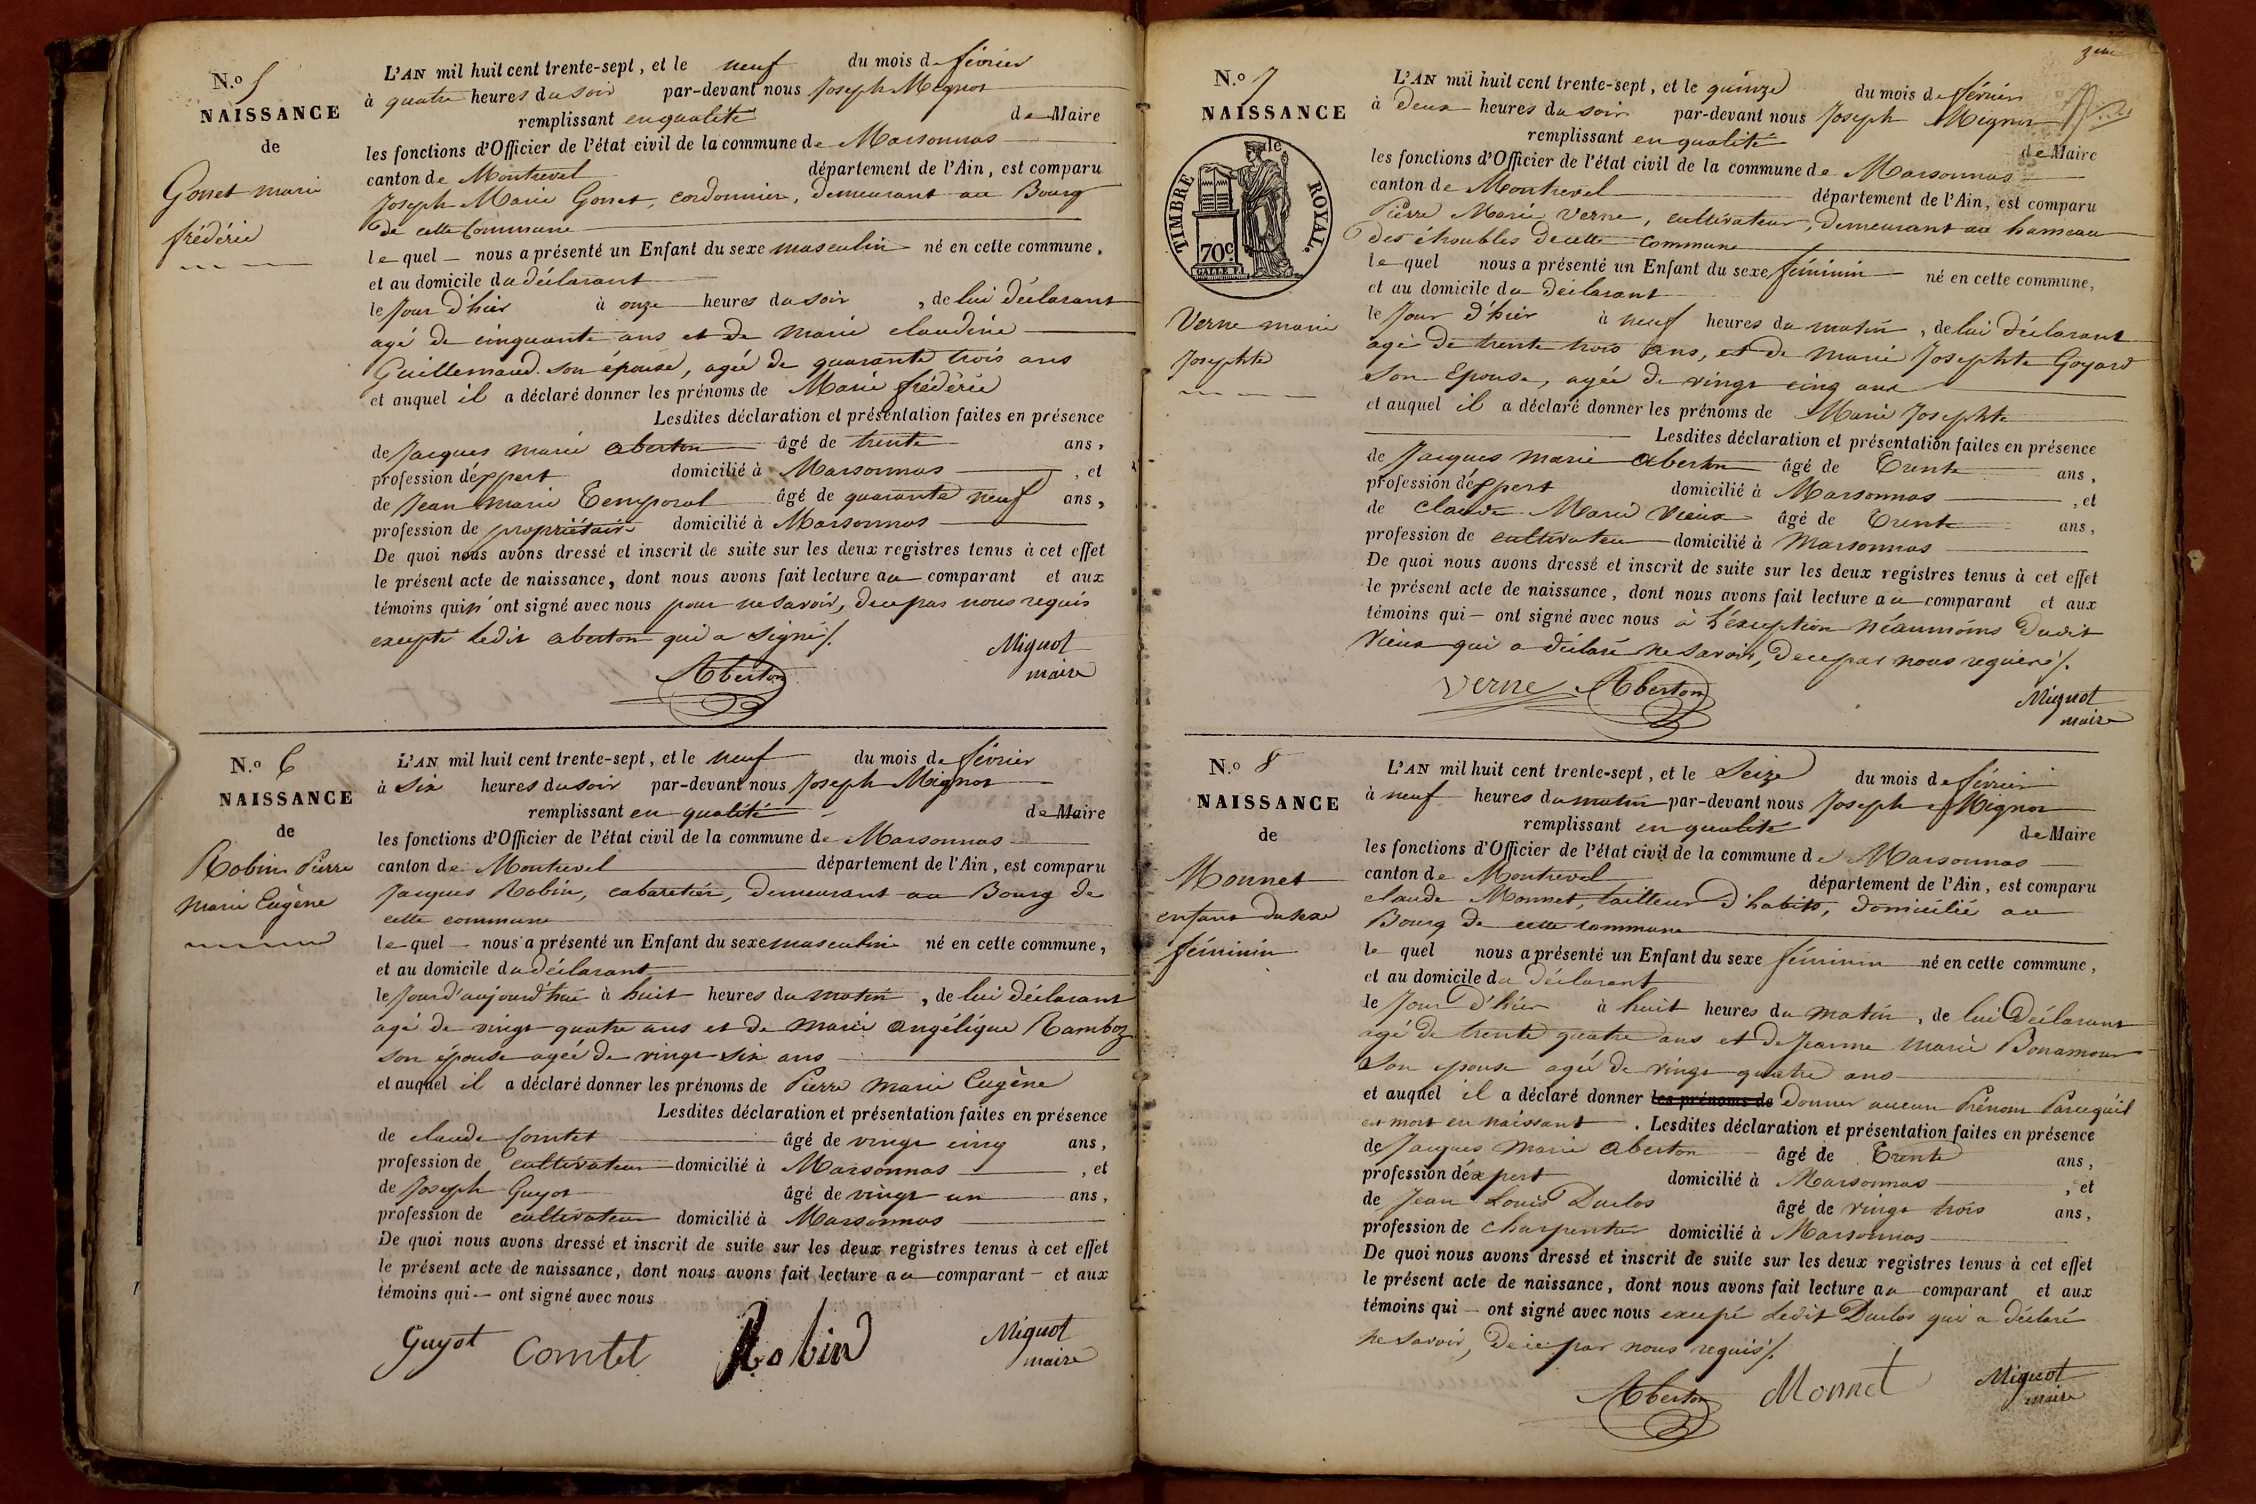 N.o 5
NAISSANCE
de
Gonet marie
frédéric
L'AN mil huit cent trente-sept, et le neuf du mois de février
à quatre heures du soir par-devant nous Joseph Mignot
remplissant en qualité de Maire
les fonctions d'Officier de l'état civil de la commune de Marsonnas
canton de Montrevel département de l'Ain, est comparu
Joseph Marie Gonet, cordonnier, demeurant au Bourg
de cette Commune
lequel nous a présenté un Enfant du sexe masculin né en cette commune,
et au domicile du déclarant
le Jour d'hier à onze heures du soir, de lui déclarant
agé de cinquante ans et de marie claudine
Guillemaud son épouse, agée de quarante trois ans
et auquel il a déclaré donner les prénoms de Marie frédéric
Lesdites déclaration et présentation faites en présence
de Jacques marie aberton âgé de trente ans,
profession d'éxpert domicilié à Marsonnas, et
de Jean marie Temporal âgé de quarante neuf ans,
profession de propriétaire domicilié à Marsonnas
De quoi nous avons dressé et inscrit de suite sur les deux registres tenus à cet effet
le présent acte de naissance, dont nous avons fait lecture au comparant et aux
témoins qui n'ont signé avec nous pour ne savoir, de ce par nous requis
excepté ledit aberton qui a signé/.
Aberton
Mignot
maire
N.o 6
NAISSANCE
de
Robin Pierre
marie Eugène
L'AN mil huit cent trente-sept, et le neuf du mois de février
à six heures du soir par-devant nous Joseph Mignot
remplissant en qualité de Maire
les fonctions d'Officier de l'état civil de la commune de Marsonnas
canton de Montrevel département de l'Ain, est comparu
Jacques Robin, cabaretier, demeurant au Bourg de
cette commune
lequel nous a présenté un Enfant du sexe masculin né en cette commune,
et au domicile du déclarant
le Jour d'aujourd'hui à huit heures du matin, de lui déclarant
agé de vingt quatre ans et de marie angélique Ramboz
son épouse agée de vingt six ans
et auquel il a déclaré donner les prénoms de Pierre marie Eugène
Lesdites déclaration et présentation faites en présence
de claude Comtet âgé de vingt cinq ans,
profession de cultivateur domicilié à Marsonnas, et
de Joseph Guyot âgé de vingt un ans,
profession de cultivateur domicilié à Marsonnas
De quoi nous avons dressé et inscrit de suite sur les deux registres tenus à cet effet
le présent acte de naissance, dont nous avons fait lecture au comparant et aux
témoins qui ont signé avec nous
Guyot Comtet Robin
Mignot
maire
3eme
N.o 7
NAISSANCE
de
TIMBRE ROYAL.
70c
Verne marie
Josephte
L'AN mil huit cent trente-sept, et le quinze du mois de février
à deux heures du soir par-devant nous Joseph Mignot
remplissant en qualité de Maire
les fonctions d'Officier de l'état civil de la commune de Marsonnas
canton de Montrevel département de l'Ain, est comparu
Pierre Marie Verne, cultivateur, demeurant au hameau
des étroubles de cette commune
lequel nous a présenté un Enfant du sexe féminin né en cette commune,
et au domicile du déclarant
le Jour d'hier à neuf heures du matin, de lui déclarant
agé de trente trois ans, et de marie Josephte Goyard
son Epouse, agée de vingt cinq ans
et auquel il a déclaré donner les prénoms de Marie Josephte
Lesdites déclaration et présentation faites en présence
de Jacques marie aberton âgé de Trente ans,
profession d'éxpert domicilié à Marsonnas, et
de claude Marie Vieux âgé de Trente ans,
profession de cultivateur domicilié à Marsonnas
De quoi nous avons dressé et inscrit de suite sur les deux registres tenus à cet effet
le présent acte de naissance, dont nous avons fait lecture au comparant et aux
témoins qui ont signé avec nous à l'éxception néanmoins dudit
Vieux qui a déclaré ne savoir, de ce par nous requis/.
Verne Aberton
Mignot
maire
N.o 8
NAISSANCE
de
Monnet
enfant du sexe
féminin
L'AN mil huit cent trente-sept, et le Seize du mois de février
à neuf heures du matin par-devant nous Joseph Mignot
remplissant en qualité de Maire
les fonctions d'Officier de l'état civil de la commune de Marsonnas
canton de Montrevel département de l'Ain, est comparu
claude Monnet, tailleur d'habits, domicilié au
Bourg de cette commune
lequel nous a présenté un Enfant du sexe féminin né en cette commune,
et au domicile du déclarant
le Jour d'hier à huit heures du matin, de lui Déclarant
agé de trente quatre ans et de Jeanne marie Bonamour
son épouse agée de vingt quatre ans
et auquel il a déclaré donner les prénoms de donner aucun Prénom Parcequ'il
est mort en naissant. Lesdites déclaration et présentation faites en présence
de Jacques Marie aberton âgé de Trente ans,
profession d'éxpert domicilié à Marsonnas, et
de Jean Louis Duclos âgé de vingt trois ans,
profession de charpentier domicilié à Marsonnas
De quoi nous avons dressé et inscrit de suite sur les deux registres tenus à cet effet
le présent acte de naissance, dont nous avons fait lecture au comparant et aux
témoins qui ont signé avec nous excepé ledit Duclos qui a déclaré
ne savoir, de ce par nous requis/.
Aberton Monnet
Mignot
maire